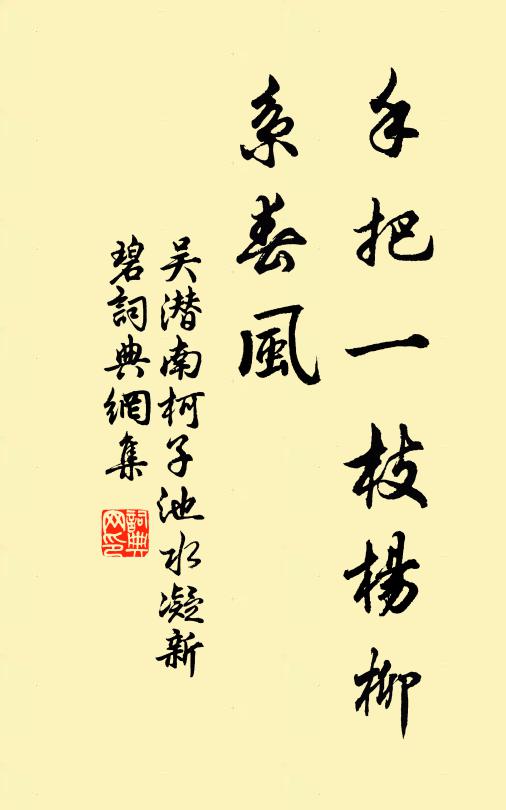 手把一枝楊柳
系春風
吴潜南柯子池水凝新
碧詞典網集
詞典網印